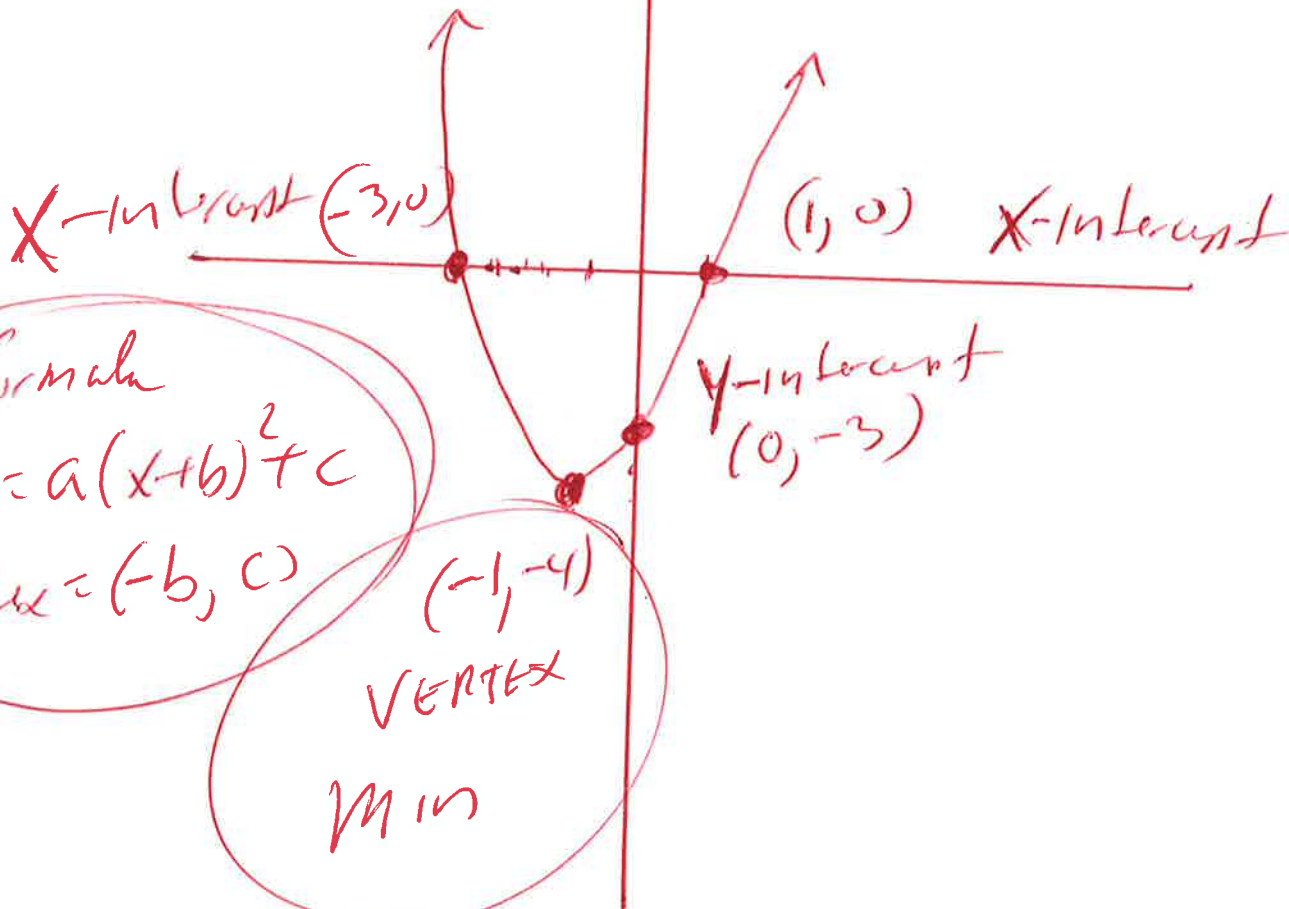 X-Intercept (-3,0)
(1, 0) X-Intercept
Y-Intercept
(0, -3)
ormula
= a(x+b)²+c
ex = (-b, c)
(-1,-4)
VERTEX
Min